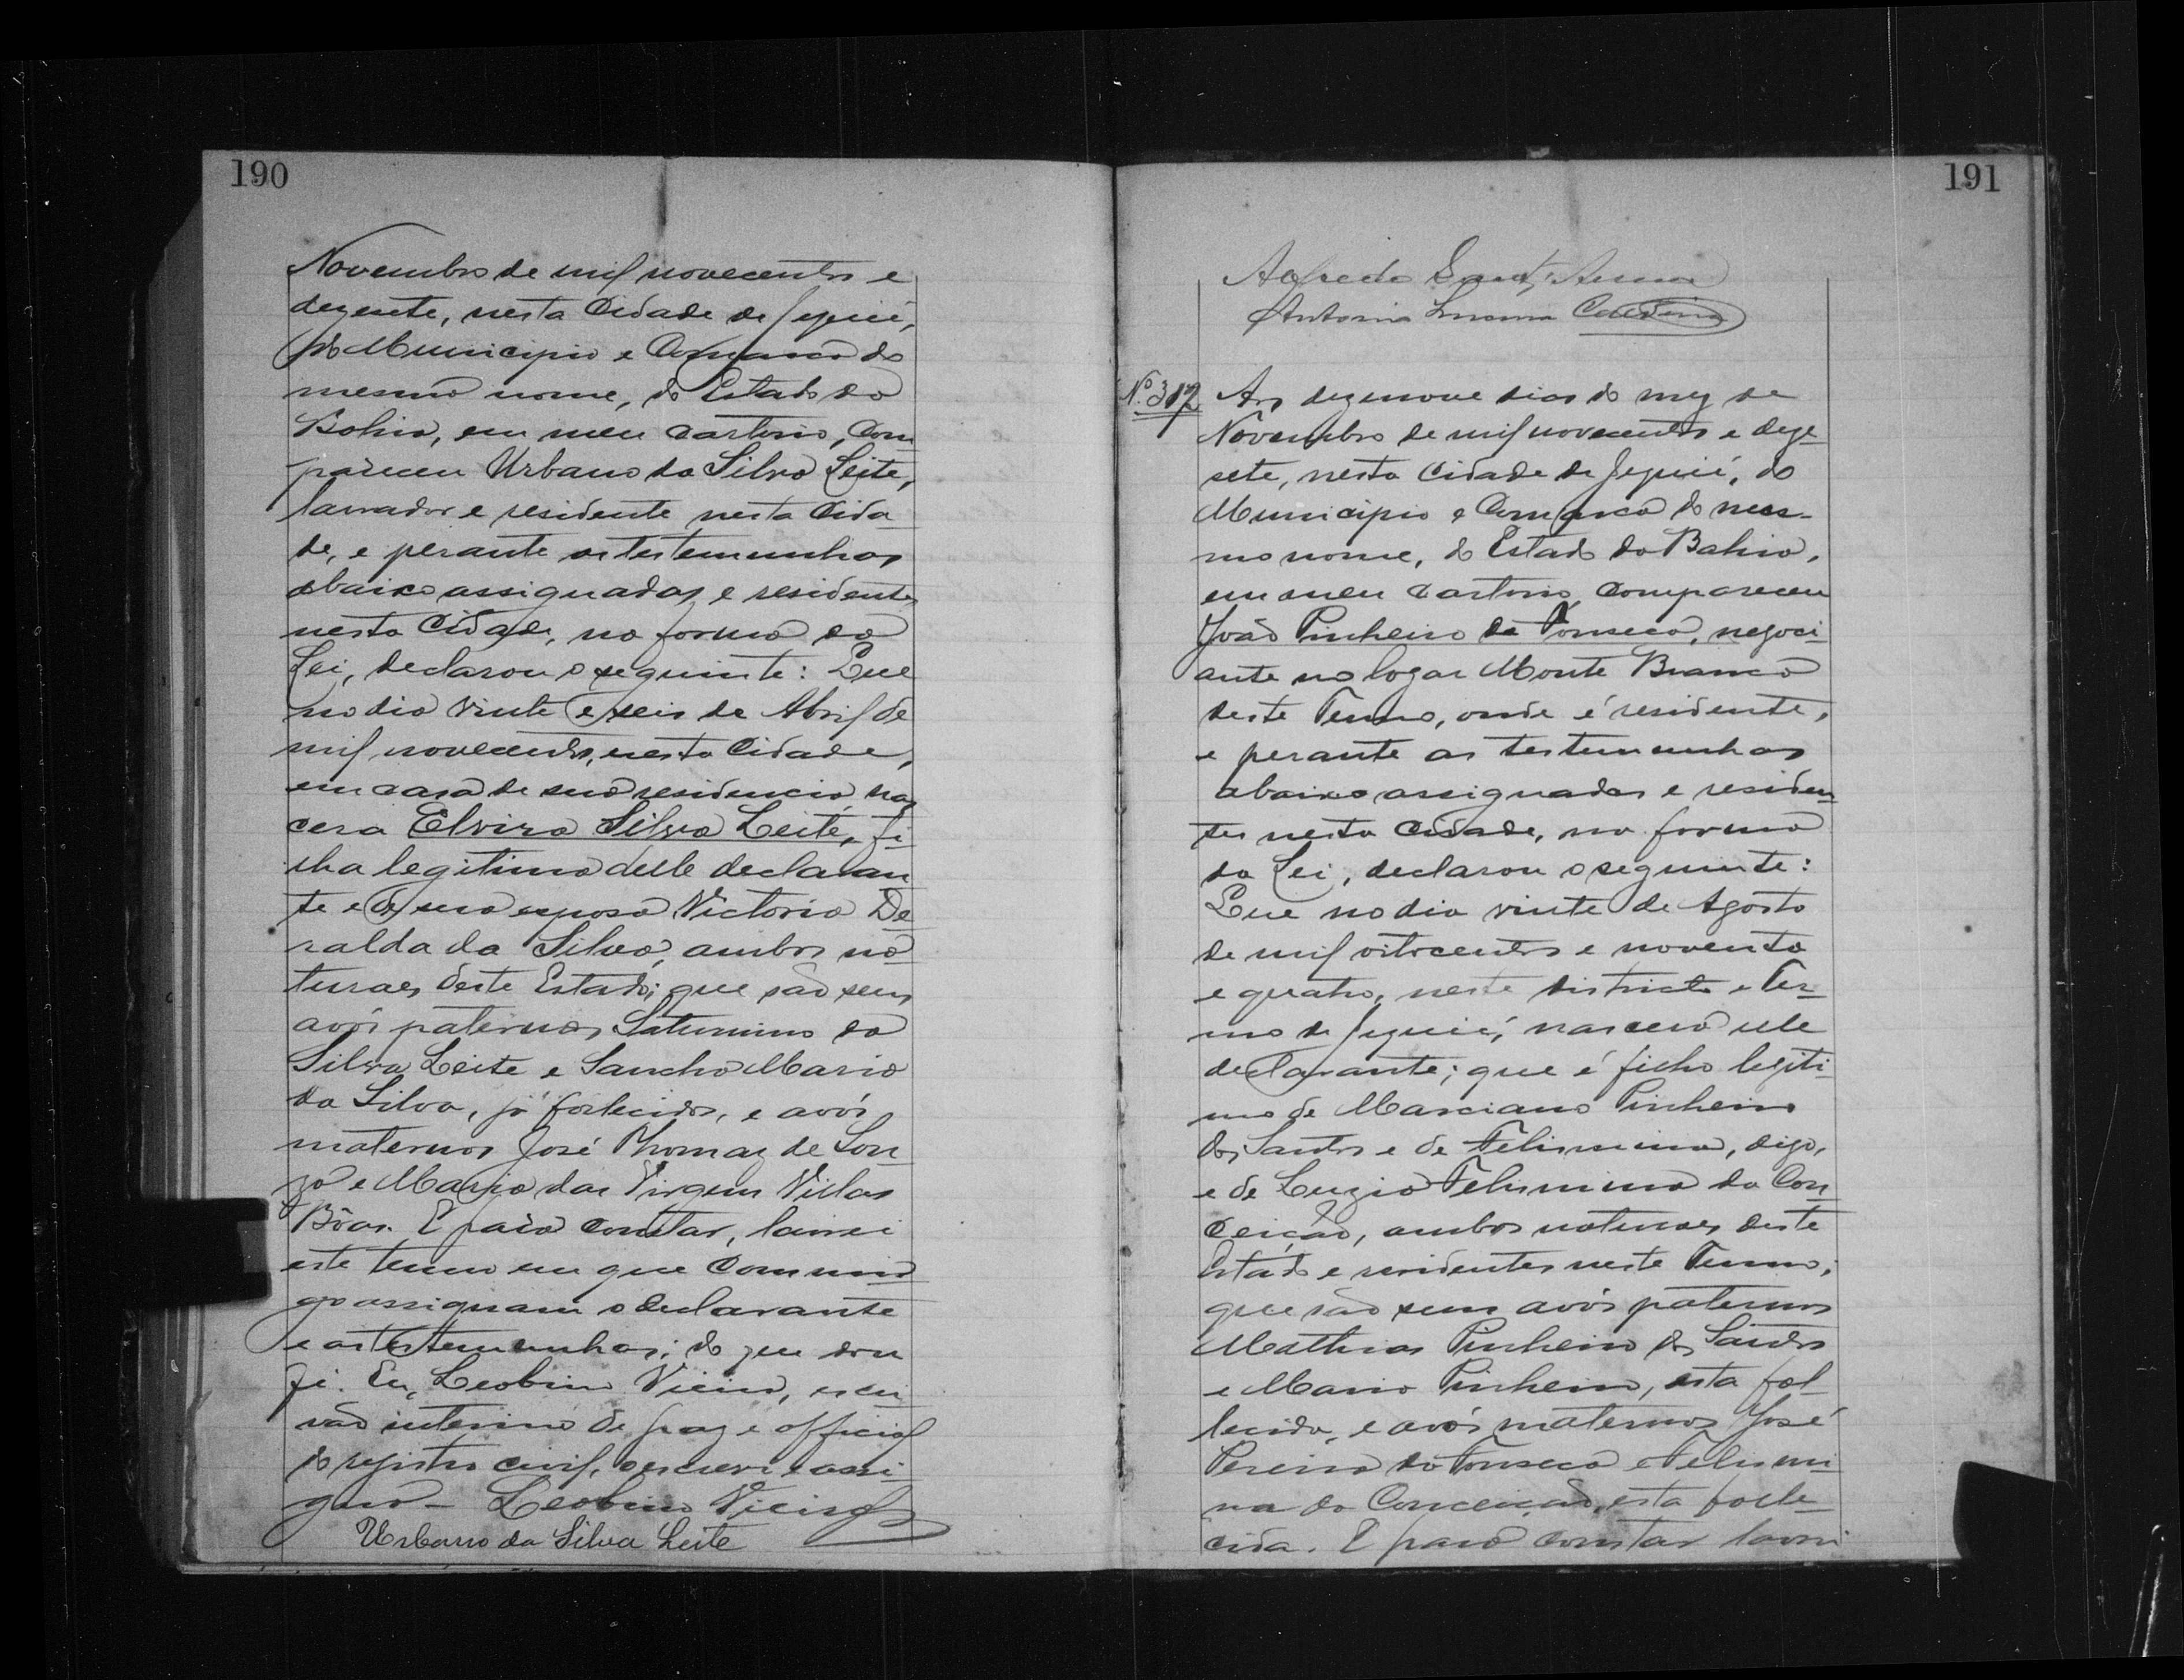 190
Novembro de mil novecentos e
dezesete, nesta Cidade de Jequié,
do Municipio e Comarca do
mesmo nome, do Estado da
Bahia, em meu cartorio, com
pareceu Urbano da Silva Leite,
lavrador e residente nesta Cida
de, e perante as testemunhas
abaixo assignadas e residentes
nesta Cidade, na forma da
Lei, declarou o seguinte: Que
no dia vinte e seis de Abril de
mil novecentos, nesta Cidade,
em casa de sua residencia, nas
cera Elvira Silva Leite, fi
lha legitima delle declaran
te e de sua esposa Victoria De
ralda da Silva, ambos na
turaes deste Estado; que são seus
avós paternos Saturnino da
Silva Leite e Sancha Maria
da Silva, já fallecidos, e avós
maternos José Thomaz de Sou
za e Maria das Virgens Villas
Bôas. E para constar, lavrei
este termo em que commi
go assignam o declarante
e as testemunhas; do que dou
fé. Eu, Leobino Vieira, escri
vão interino de paz e official
do registro civil, o escrevi e assi
gno - Leobino Vieira
Urbano da Silva Leite
191
Alfredo Sant'Anna
Antonio
Nº 312
Aos dezenove dias do mez de
Novembro de mil novecentos e deze-
sete, nesta Cidade de Jequié, do
Municipio e Comarca do mes-
mo nome, do Estado da Bahia,
em meu cartorio, compareceu
João Pinheiro da Fonseca, negoci-
ante no logar Monte Branco
deste Termo, onde é residente,
e perante as testemunhas
abaixo assignadas e residen
tes nesta Cidade, na forma
da Lei, declarou o seguinte:
Que no dia vinte de Agosto
de mil oitocentos e noventa
e quatro, neste districto e Ter-
mo de Jequié, nascera elle
declarante; que é filho legiti-
mo de Marciano Pinheiro
dos Santos e de Felismina, digo,
e de Luzia Felismina da Con
ceição, ambos naturaes deste
Estado e residentes neste Termo;
que são seus avós paternos
Mathias Pinheiro dos Santos
e Maria Pinheiro, esta fal-
lecida, e avós maternos José
Pereira da Fonseca e Felismi-
na da Conceição, esta falle-
cida. E para constar lavrei